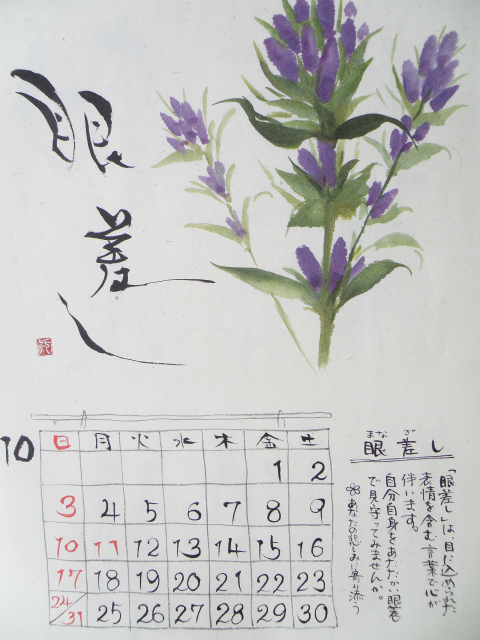 眼差し
10
日 月 火 水 木 金 土
1 2
3 4 5 6 7 8 9
10 11 12 13 14 15 16
17 18 19 20 21 22 23
24/31 25 26 27 28 29 30
まな ざ
眼差し
「眼差し」は、目に込められた
表情を含む言葉で心が
伴います。
自分自身をあたたかい眼差
で見守ってみませんか。
あなたの悲しみに寄り添う